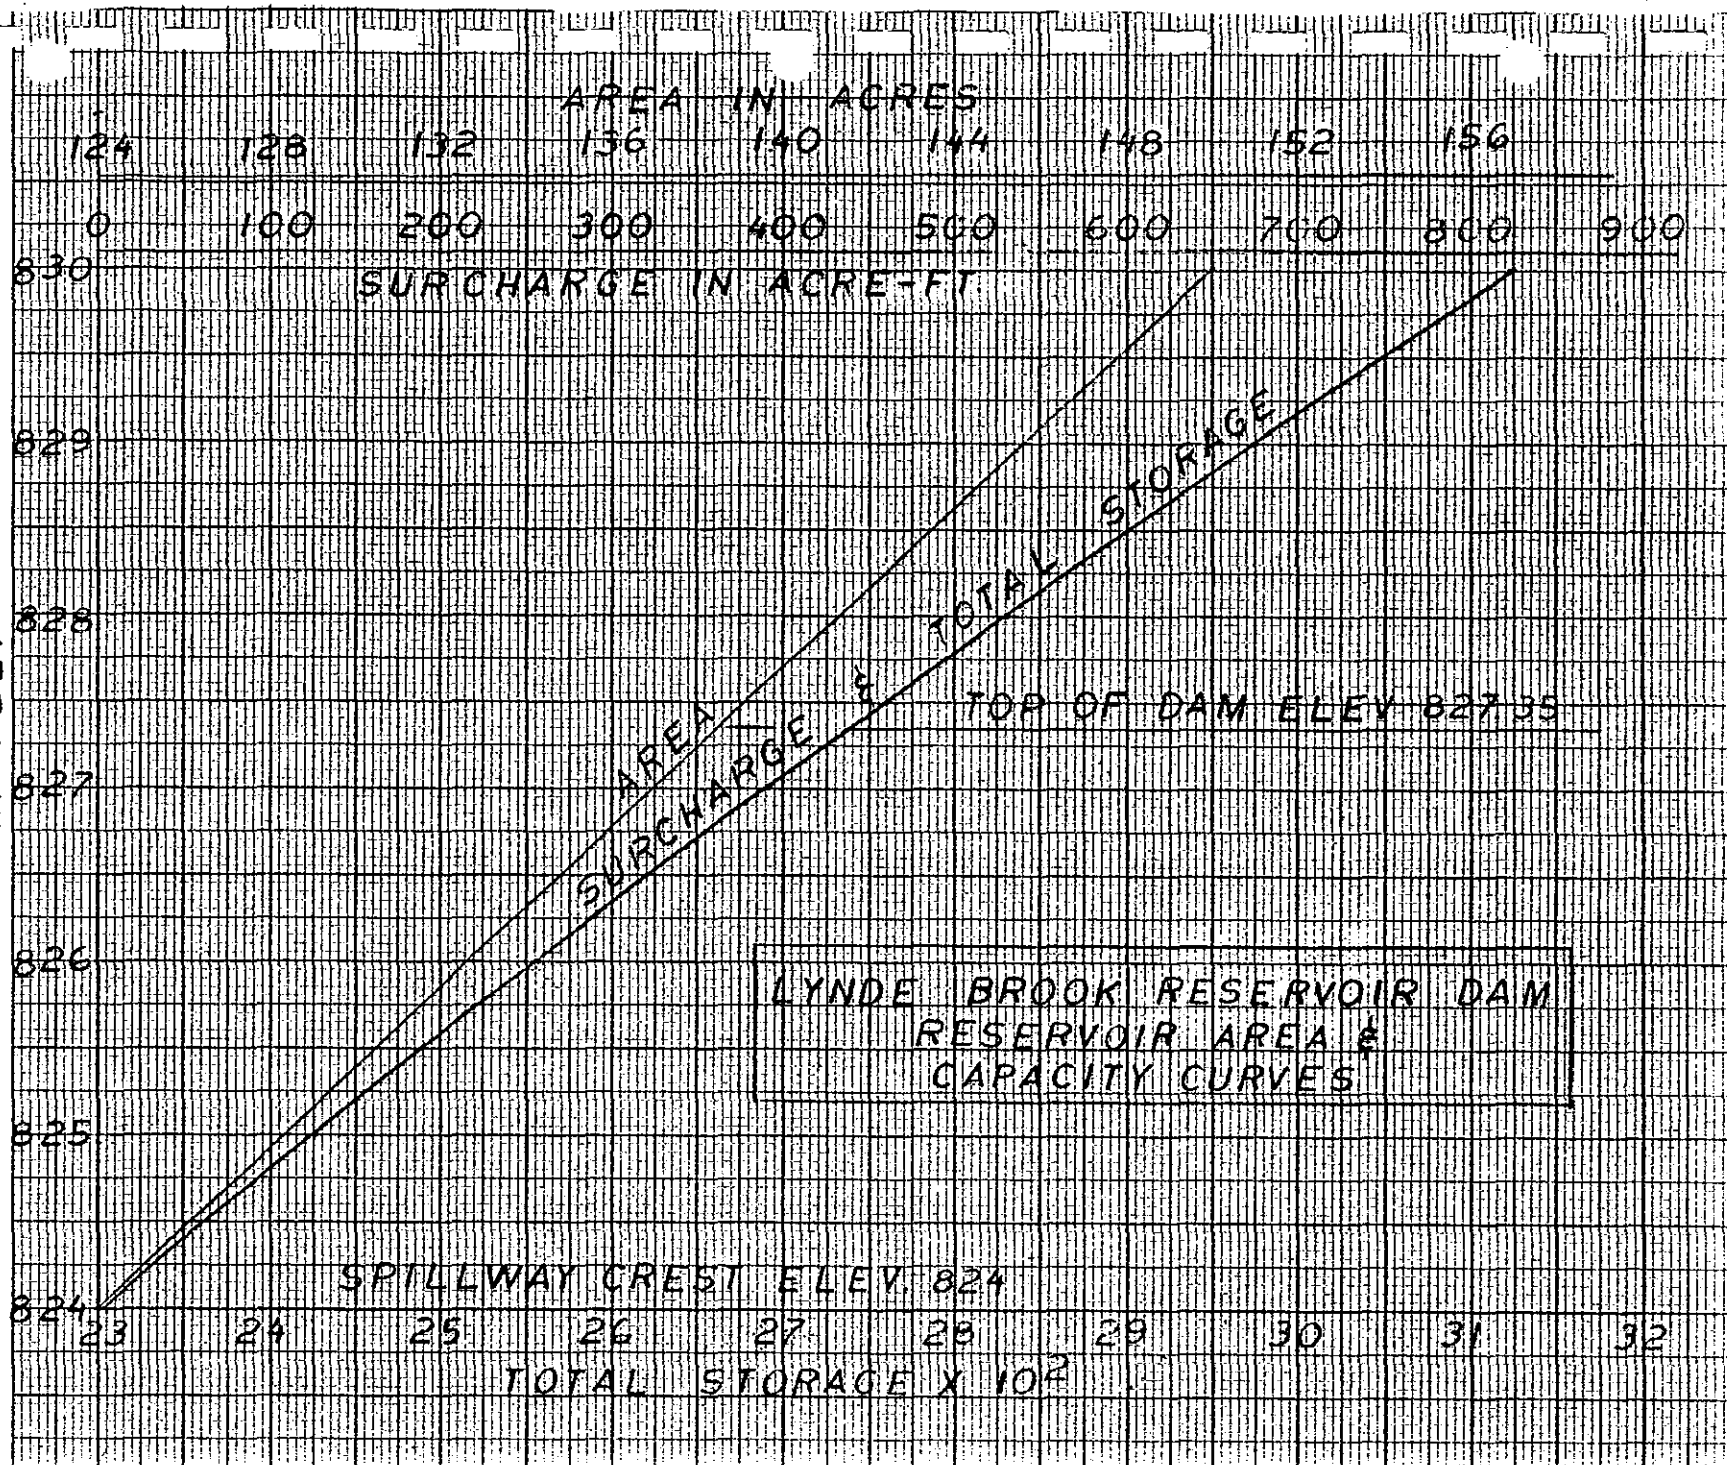 AREA IN ACRES
124 128 132 136 140 144 148 152 156
0 100 200 300 400 500 600 700 800 900
SURCHARGE IN ACRE-FT
830
829
828
827
826
825
824
AREA
SURCHARGE & TOTAL STORAGE
TOP OF DAM ELEV 827.35
LYNDE BROOK RESERVOIR DAM
RESERVOIR AREA &
CAPACITY CURVES
SPILLWAY CREST ELEV. 824
23 24 25 26 27 28 29 30 31 32
TOTAL STORAGE X 10²